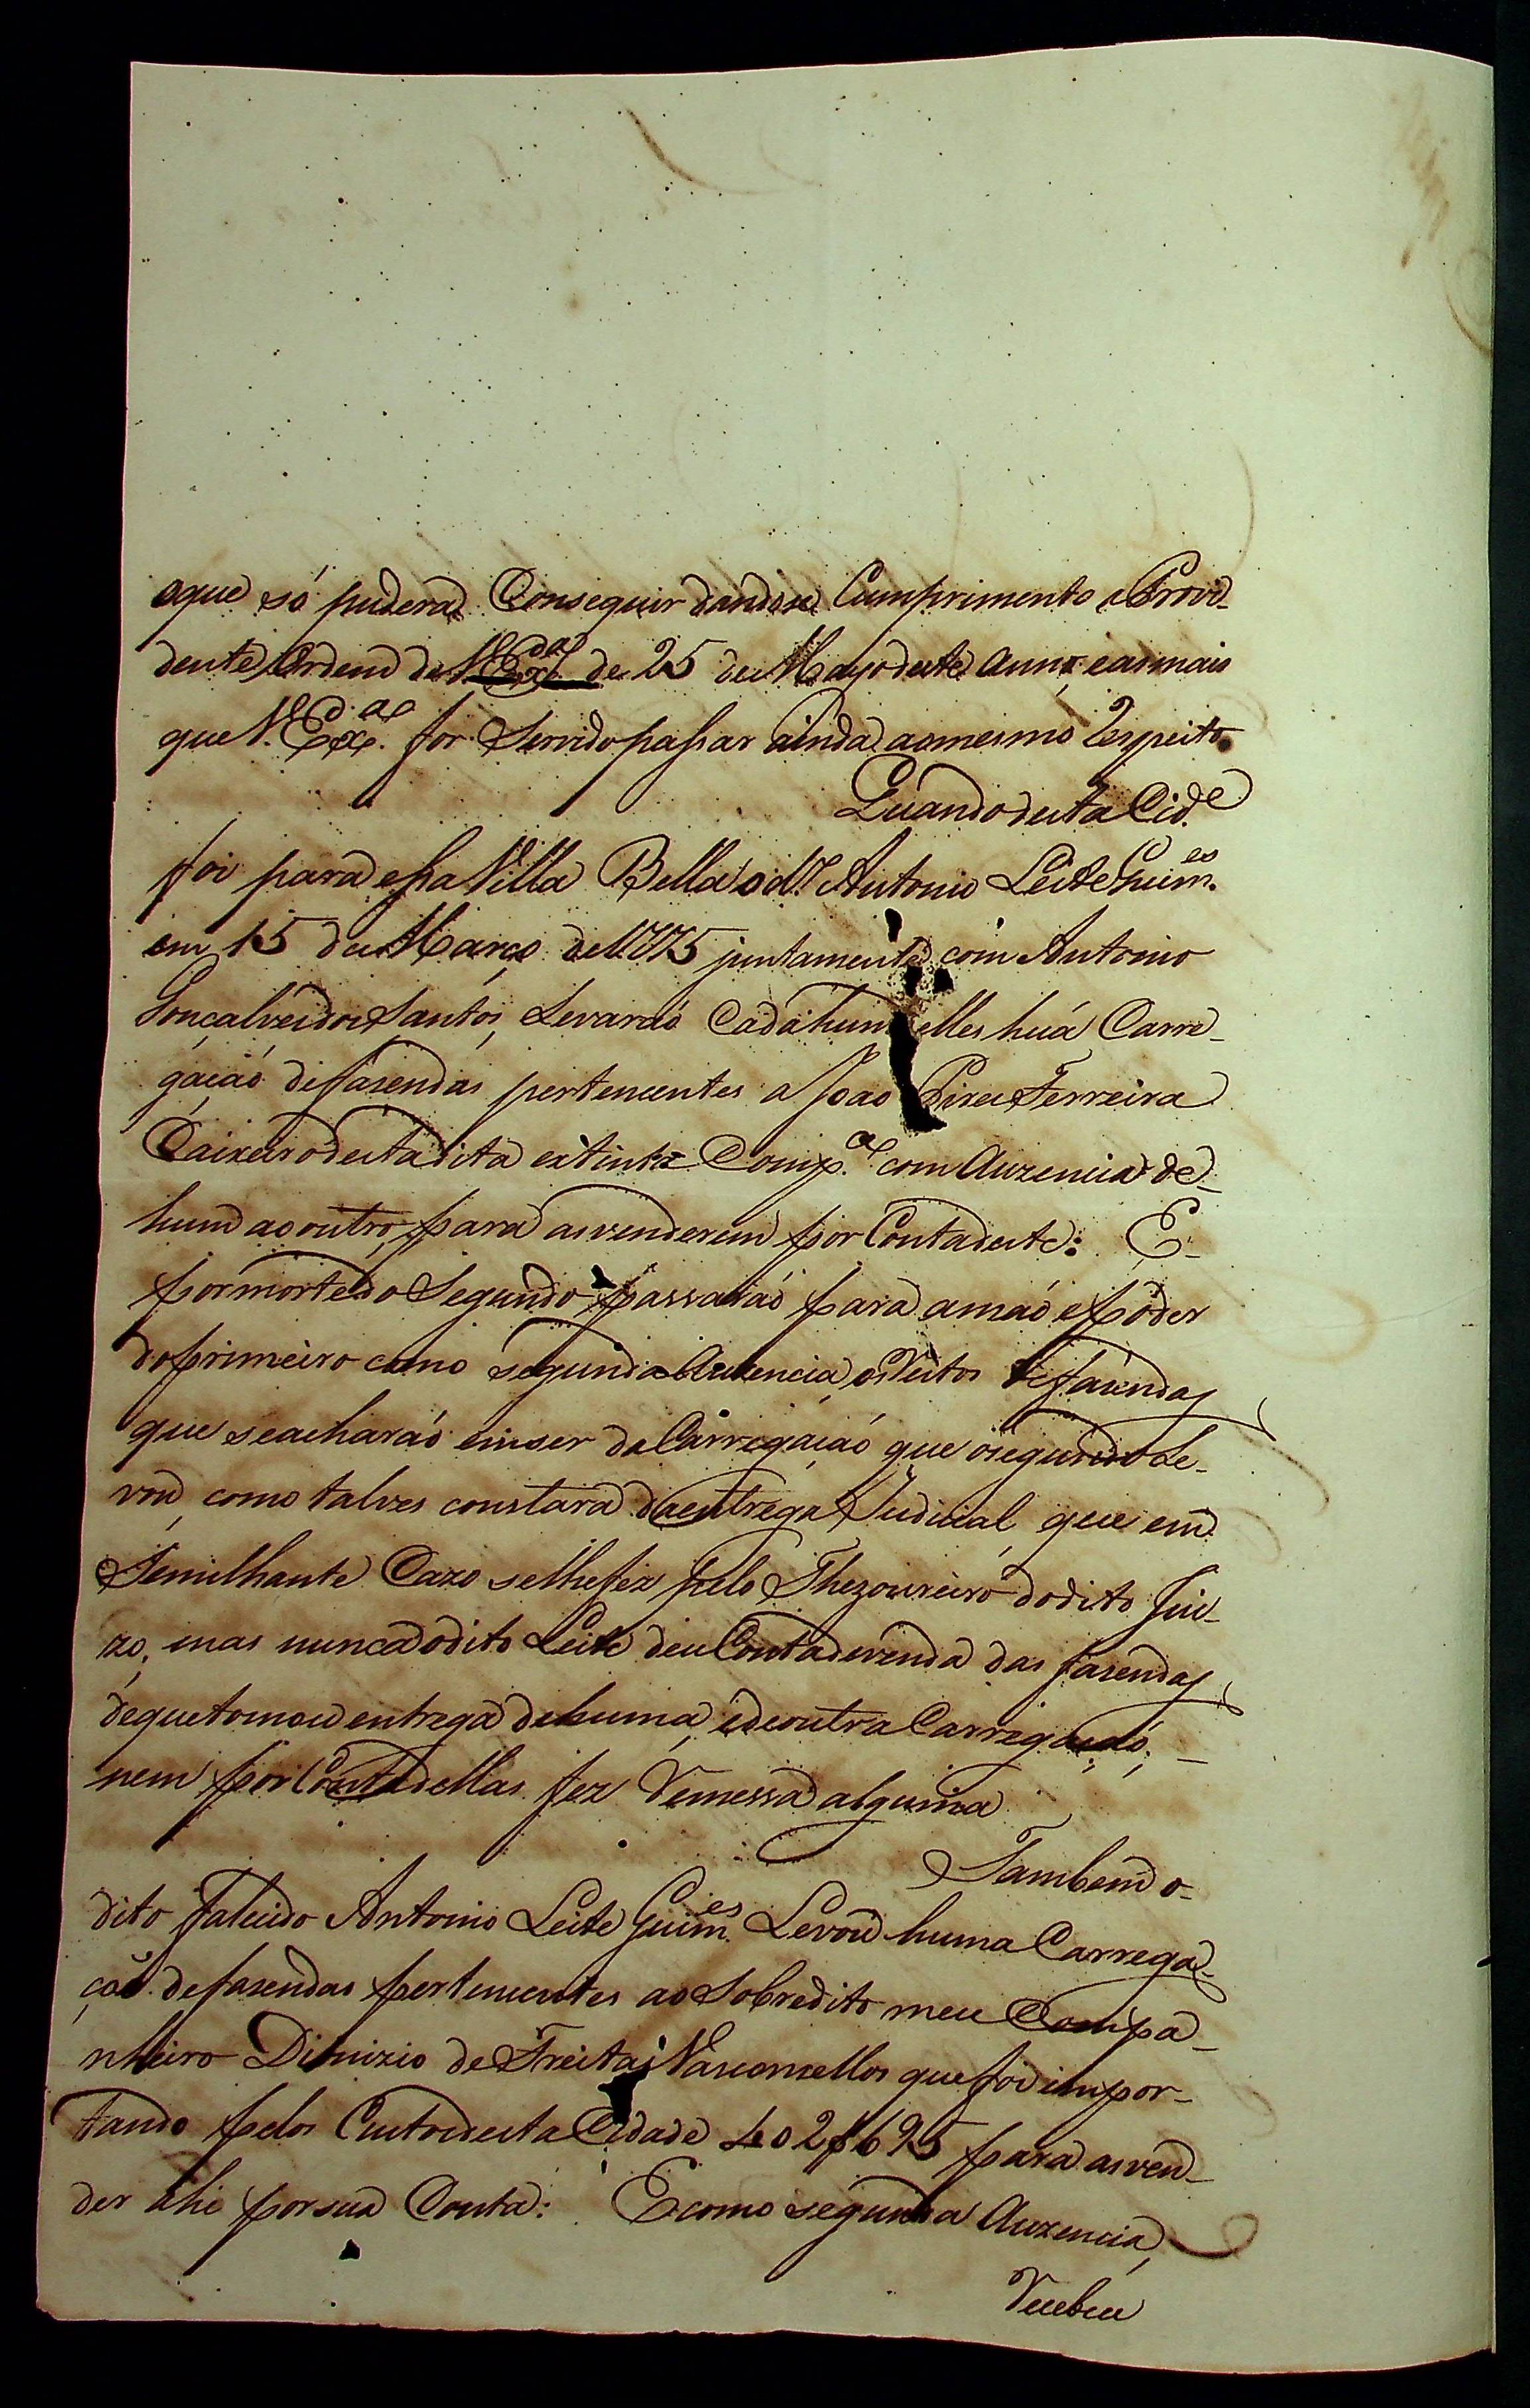 oque só poderá Conseguir dandose Cumprimento a Provi-
dente Ordem de V. Ex.ª de 25 de Mayo deste anno, easmais
que V. Ex.ª for Servido passar ainda aomesmo Respeito.
Quando desta Cid.e
foi para essa Villa Bella o d.º Antonio Leite Guim.es
em 15 de Março de 1775 juntamente com Antonio
Gonçalvesdos Santos, Levaraó Cada hum elles huá Carre-
gaçaó defasendas pertencentes a Joao Pires Ferreira
Caixeiro desta dita extinta Comp.ª com Auzencia de-
hum ao outro, para asvenderem por Contadeste: E-
pormortedo Segundo passaraó para amaó epoder
doprimeiro como segunda Auzencia, osefeitos e fasendas
que seacharaó emser da Carregaçaó que osegundo Le-
vou, como talves constará daentrega Judicial, que em
Semilhante Cazo selhefez pelo Thezoureiro dodito Jui-
zo, mas nunca odito Leite deu Contadevenda das fasendas
dequetomou entrega dehuma, edeoutra Carregaçaó,
nem por Contadellas fez Remessa alguma
Tambem o-
dito falecido Antonio Leite Guim.es Levou huma Carrega-
çaõ defasendas pertencentes ao Sobredito meu Compa-
nheiro Dionizio de Freitas Vasconsellos que foi impor-
tando pelos Custosdesta Cidade 402$695 para asven-
der lhe porsua Conta: E como segunda Auzencia,
Recebeu